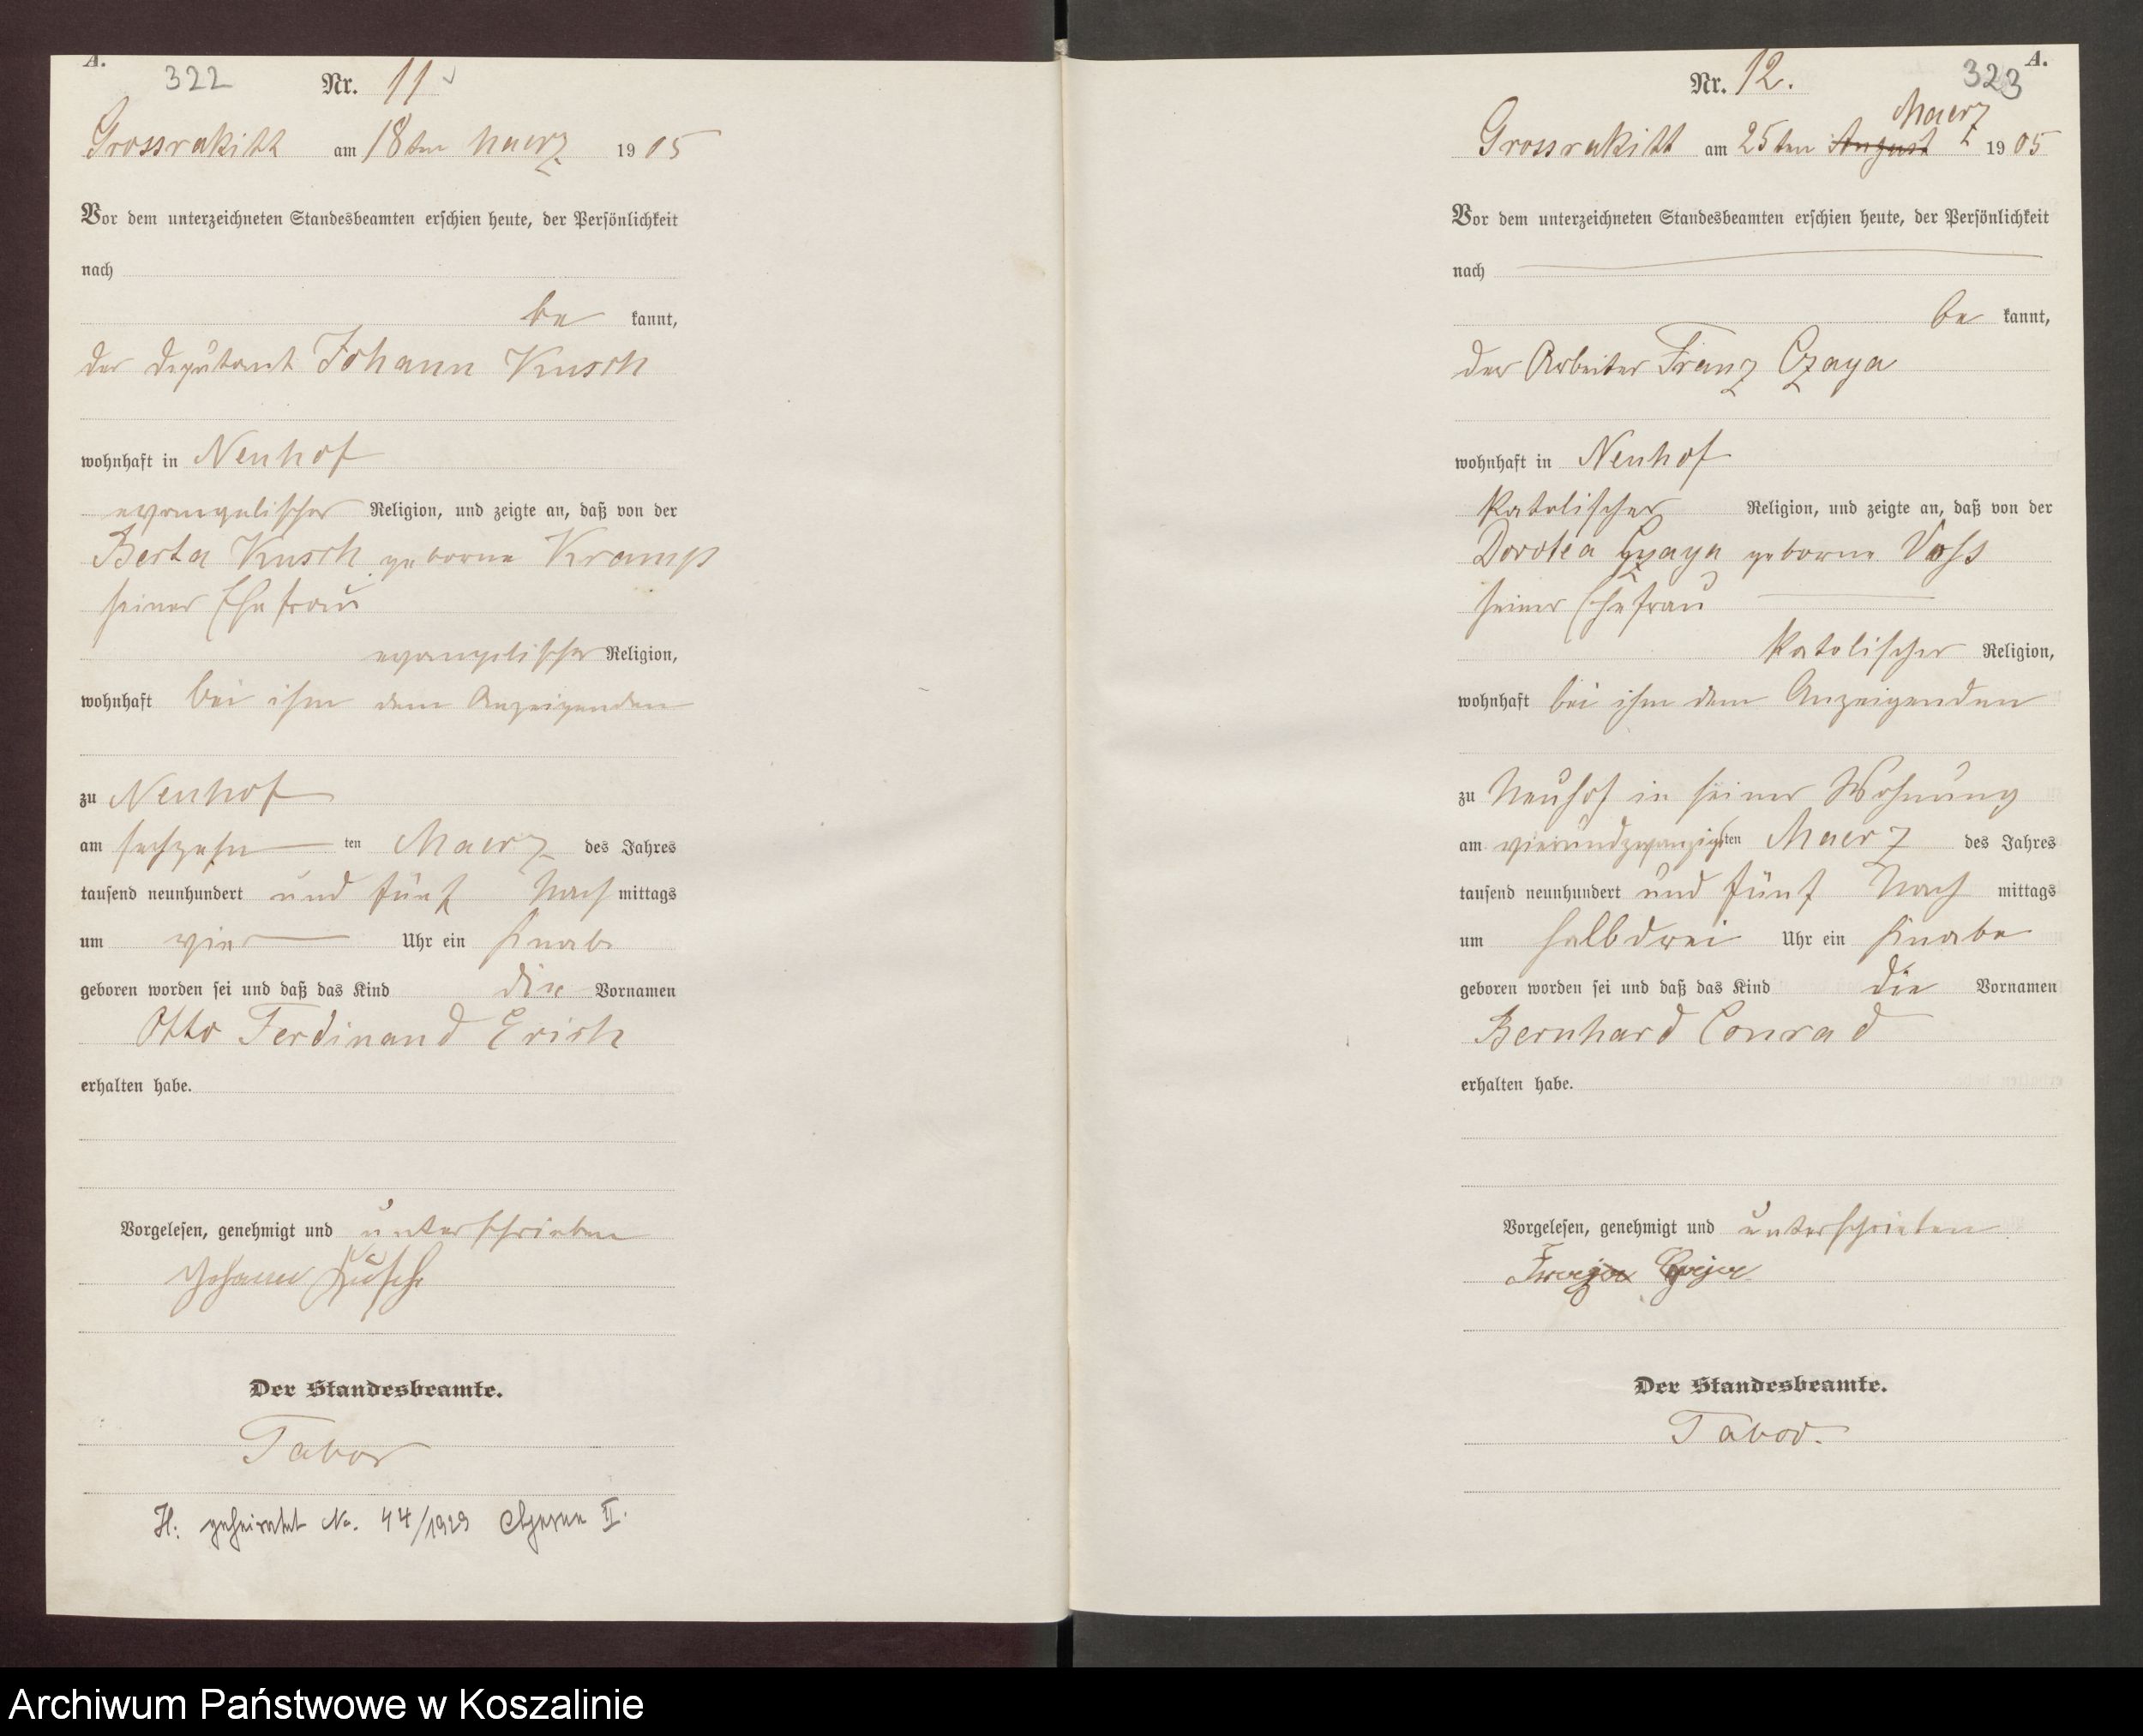 A.
322 Nr. 11
Grossrakitt am 18ten Maerz 1905
Vor dem unterzeichneten Standesbeamten erschien heute, der Persönlichkeit
nach
be kannt,
der Deputant Johann Kusch
wohnhaft in Neuhof
evangelischer Religion, und zeigte an, daß von der
Berta Kusch geborne Kramp
seiner Ehefrau
evangelischer Religion,
wohnhaft bei ihm dem Anzeigenden
zu Neuhof
am sechzehn ten Maerz des Jahres
tausend neunhundert und fünf Nach mittags
um vier Uhr ein Knabe
geboren worden sei und daß das Kind die Vornamen
Otto Ferdinand Erich
erhalten habe.
Vorgelesen, genehmigt und unterschrieben
Johann Kusch
Der Standesbeamte.
Tabor
H: geheiratet No. 44/1929 II.
A.
Nr. 12. 323
Maerz
Grossrakitt am 25ten August 1905
Vor dem unterzeichneten Standesbeamten erschien heute, der Persönlichkeit
nach
be kannt,
der Arbeiter Franz Czaya
wohnhaft in Neuhof
katolischer Religion, und zeigte an, daß von der
Dorotea Czaya geborne Voss
seiner Ehefrau
katolischer Religion,
wohnhaft bei ihm dem Anzeigenden
zu Neuhof in seiner Wohnung
am vierundzwanzigsten Maerz des Jahres
tausend neunhundert und fünf Nach mittags
um halb drei Uhr ein Knabe
geboren worden sei und daß das Kind die Vornamen
Bernhard Conrad
erhalten habe.
Vorgelesen, genehmigt und unterschrieben
Der Standesbeamte.
Tabor.
Archiwum Państwowe w Koszalinie